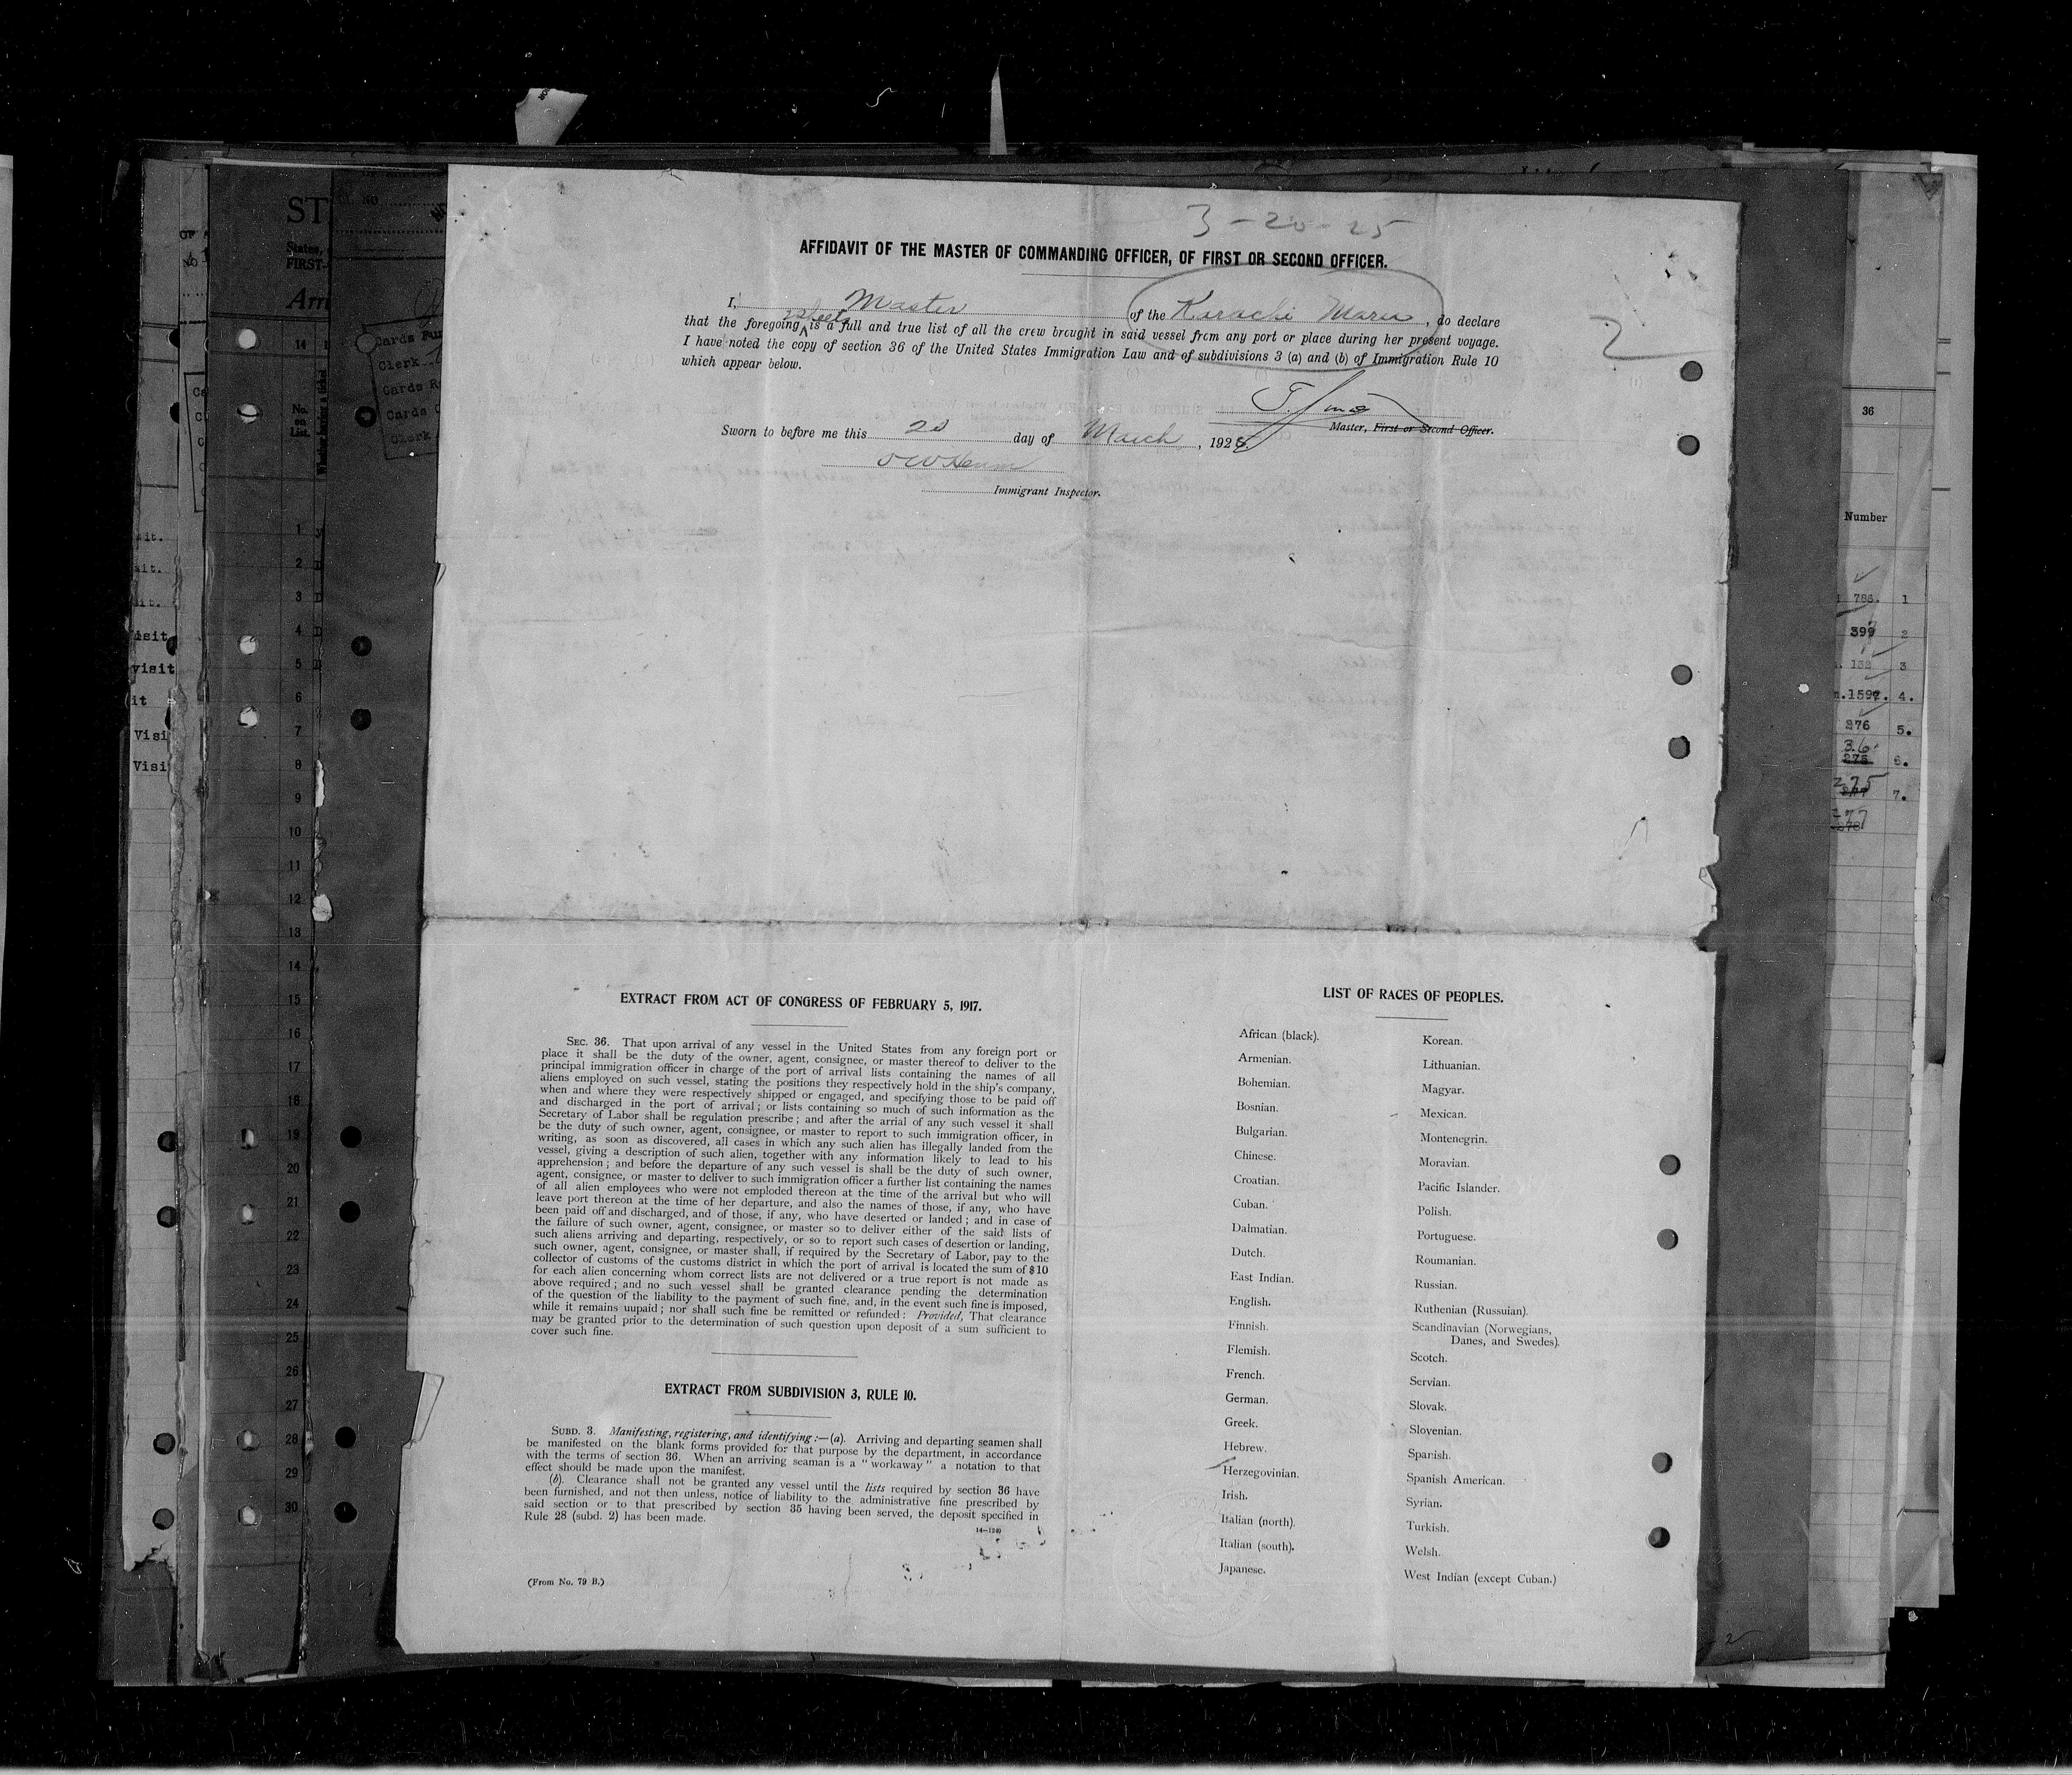 3-20-25
AFFIDAVIT OF THE MASTER OF COMMANDING OFFICER, OF FIRST OR SECOND OFFICER.
I, Master of the Karachi Maru, do declare
2 sheets
that the foregoing is a full and true list of all the crew brought in said vessel from any port or place during her present voyage.
I have noted the copy of section 36 of the United States Immigration Law and of subdivisions 3 (a) and (b) of Immigration Rule 10
which appear below.
2
Master, First or Second Officer.
Sworn to before me this 20 day of March, 1925
Immigrant Inspector.
EXTRACT FROM ACT OF CONGRESS OF FEBRUARY 5, 1917.
SEC. 36. That upon arrival of any vessel in the United States from any foreign port or
place it shall be the duty of the owner, agent, consignee, or master thereof to deliver to the
principal immigration officer in charge of the port of arrival lists containing the names of all
aliens employed on such vessel, stating the positions they respectively hold in the ship's company,
when and where they were respectively shipped or engaged, and specifying those to be paid off
and discharged in the port of arrival; or lists containing so much of such information as the
Secretary of Labor shall be regulation prescribe; and after the arrial of any such vessel it shall
be the duty of such owner, agent, consignee, or master to report to such immigration officer, in
writing, as soon as discovered, all cases in which any such alien has illegally landed from the
vessel, giving a description of such alien, together with any information likely to lead to his
apprehension; and before the departure of any such vessel is shall be the duty of such owner,
agent, consignee, or master to deliver to such immigration officer a further list containing the names
of all alien employees who were not emploded thereon at the time of the arrival but who will
leave port thereon at the time of her departure, and also the names of those, if any, who have
been paid off and discharged, and of those, if any, who have deserted or landed; and in case of
the failure of such owner, agent, consignee, or master so to deliver either of the said lists of
such aliens arriving and departing, respectively, or so to report such cases of desertion or landing,
such owner, agent, consignee, or master shall, if required by the Secretary of Labor, pay to the
collector of customs of the customs district in which the port of arrival is located the sum of $10
for each alien concerning whom correct lists are not delivered or a true report is not made as
above required; and no such vessel shall be granted clearance pending the determination
of the question of the liability to the payment of such fine, and, in the event such fine is imposed,
while it remains uupaid; nor shall such fine be remitted or refunded: Provided, That clearance
may be granted prior to the determination of such question upon deposit of a sum sufficient to
cover such fine.
EXTRACT FROM SUBDIVISION 3, RULE 10.
SUBD. 3. Manifesting, registering, and identifying:—(a). Arriving and departing seamen shall
be manifested on the blank forms provided for that purpose by the department, in accordance
with the terms of section 36. When an arriving seaman is a "workaway" a notation to that
effect should be made upon the manifest.
(b). Clearance shall not be granted any vessel until the lists required by section 36 have
been furnished, and not then unless, notice of liability to the administrative fine prescribed by
said section or to that prescribed by section 35 having been served, the deposit specified in
Rule 28 (subd. 2) has been made.
(From No. 79 B.)
LIST OF RACES OF PEOPLES.
African (black).
Armenian.
Bohemian.
Bosnian.
Bulgarian.
Chinese.
Croatian.
Cuban.
Dalmatian.
Dutch.
East Indian.
English.
Finnish.
Flemish.
French.
German.
Greek.
Hebrew.
Herzegovinian.
Irish.
Italian (north).
Italian (south).
Japanese.
Korean.
Lithuanian.
Magyar.
Mexican.
Montenegrin.
Moravian.
Pacific Islander.
Polish.
Portuguese.
Roumanian.
Russian.
Ruthenian (Russuian).
Scandinavian (Norwegians,
Danes, and Swedes).
Scotch.
Servian.
Slovak.
Slovenian.
Spanish.
Spanish American.
Syrian.
Turkish.
Welsh.
West Indian (except Cuban.)
ST
States,
FIRST-
Arri
14
No.
on
List.
Whether having a ticket
Clerk
Cards
Clerk
1
2
3
4
5
6
7
8
9
10
11
12
13
14
15
16
17
18
19
20
21
22
23
24
25
26
27
28
29
30
visit
it
Visi
Visi
36
Number
786. 1
399 2
3
1597. 4.
376 5.
36
6.
275
7.
277
2